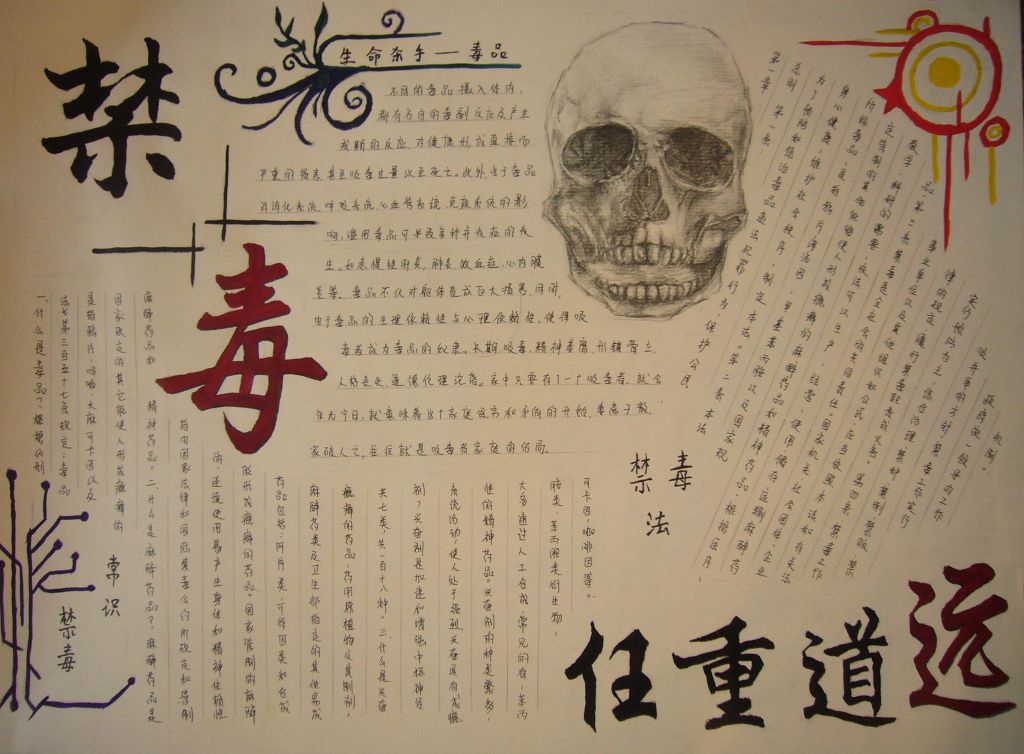 禁
毒
生命杀手——毒品
不同的毒品摄入体内,
都有各自的毒副反应及产生
戒断的反应,对健康形成直接而
严重的损害,甚至吸毒过量以至死亡。此外,由于毒品
对消化系统,呼吸系统,心血管系统,免疫系统的影
响,滥用毒品可导致多种并发症的发
生,如急慢性肝炎,肺炎,败血症,心内膜
炎等。毒品不仅对躯体造成巨大损害,同时,
由于毒品的生理依赖性与心理依赖性,使得吸
毒者成为毒品的奴隶。长期吸毒,精神萎靡,形销骨立,
人格丧失,道德伦理沦落。家中只要有了一个吸毒者,就会
永无宁日,就意味着这个家庭贫穷和矛盾的开始,妻离子散,
家破人亡,往往就是吸毒者家庭的结局。
禁毒法
第一章
总则 第一条:
为了预防和惩治毒品违法犯罪行为,保护公民
身心健康,维护社会秩序,制定本法。第二条 本法
所称毒品,是指鸦片海洛因,甲基苯丙胺以及国家规
定管制的其他能够使人形成瘾癖的麻醉药品和精神药品。根据医疗,
教学,科研的需要,依法可以生产 经营,使用,储存,运输麻醉药
品。第三条禁毒是全社会的共同责任。国家机关,社会团体,企业
事业单位以及其他组织和公民,应当依照本法和有关法
律的规定,履行禁毒职责或义务。第四条 禁毒工作
实行预防为主,综合治理,禁种,禁制,禁贩,禁
吸并举的方针,禁毒工作实行
政府统一领导的工作
机制。
禁毒
常识
一、什么是毒品?根据《刑
法》第三百五十七条规定:毒品
是指鸦片,吗啡,大麻可卡因以及
国家规定的其它能使人形成瘾癖的
麻醉药品和 精神药品。二、什么是麻醉药品?麻醉药品是
指由国家法律和国际禁毒公约所规定和管制
的,连续使用易产生身体和精神依赖性
能形成瘾癖的药品。国家管制的麻醉
药品包括:阿片类,可待因类和合成
麻醉药类及卫生部指定的其他易成
瘾癖的药品,药用原植物及其制剂,
共七类,共一百十八种。三、什么是兴奋
剂?兴奋剂是加速和增强中枢神经
系统活动,使人处于强烈兴奋具有成瘾
性的精神药品。兴奋剂的种类繁多,
大多通过人工合成,常见的有:苯丙
胺类,苯丙胺类衍生物,
可卡因咖啡因等。
任重道远